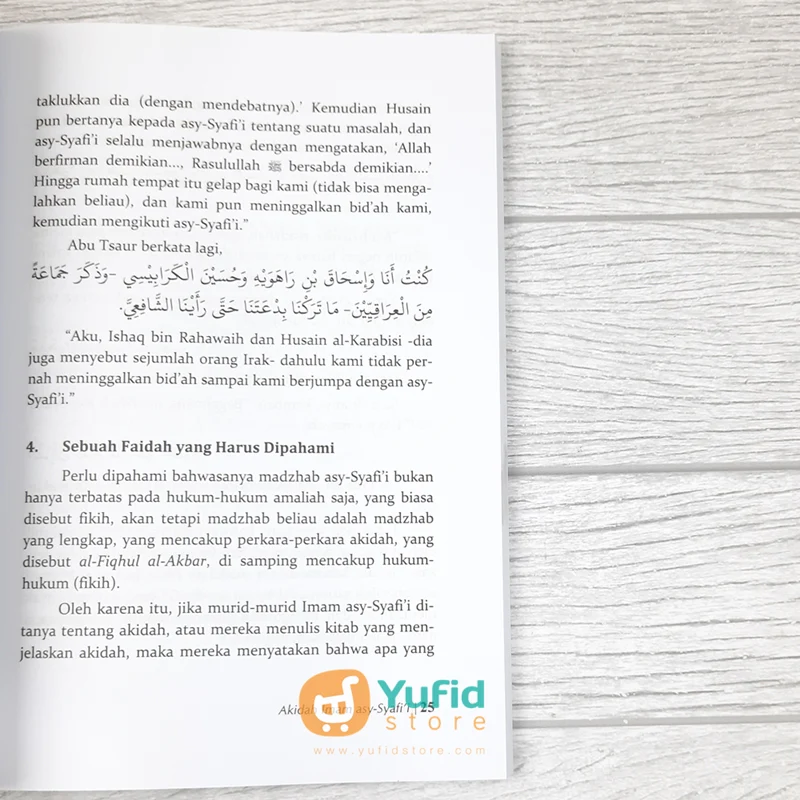 taklukkan dia (dengan mendebatnya).’ Kemudian Husain
pun bertanya kepada asy-Syafi’i tentang suatu masalah, dan
asy-Syafi’i selalu menjawabnya dengan mengatakan, ‘Allah
berfirman demikian..., Rasulullah ﷺ bersabda demikian....’
Hingga rumah tempat itu gelap bagi kami (tidak bisa menga-
lahkan beliau), dan kami pun meninggalkan bid’ah kami,
kemudian mengikuti asy-Syafi’i.”
Abu Tsaur berkata lagi,
كُنْتُ أَنَا وَإِسْحَاقَ بْنِ رَاهَوَيْهِ وَحُسَيْنَ الْكَرَابِيْسِي -وَذَكَرَ جَمَاعَةً
مِنَ الْعِرَاقِيِّيْنَ- مَا تَرَكْنَا بِدْعَتَنَا حَتَّى رَأَيْنَا الشَّافِعِيَّ.
“Aku, Ishaq bin Rahawaih dan Husain al-Karabisi -dia
juga menyebut sejumlah orang Irak- dahulu kami tidak per-
nah meninggalkan bid’ah sampai kami berjumpa dengan asy-
Syafi’i.”
4. Sebuah Faidah yang Harus Dipahami
Perlu dipahami bahwasanya madzhab asy-Syafi’i bukan
hanya terbatas pada hukum-hukum amaliah saja, yang biasa
disebut fikih, akan tetapi madzhab beliau adalah madzhab
yang lengkap, yang mencakup perkara-perkara akidah, yang
disebut al-Fiqhul al-Akbar, di samping mencakup hukum-
hukum (fikih).
Oleh karena itu, jika murid-murid Imam asy-Syafi’i di-
tanya tentang akidah, atau mereka menulis kitab yang men-
jelaskan akidah, maka mereka menyatakan bahwa apa yang
Akidah Imam asy-Syafi’i | 25
Yufid
store
www.yufidstore.com